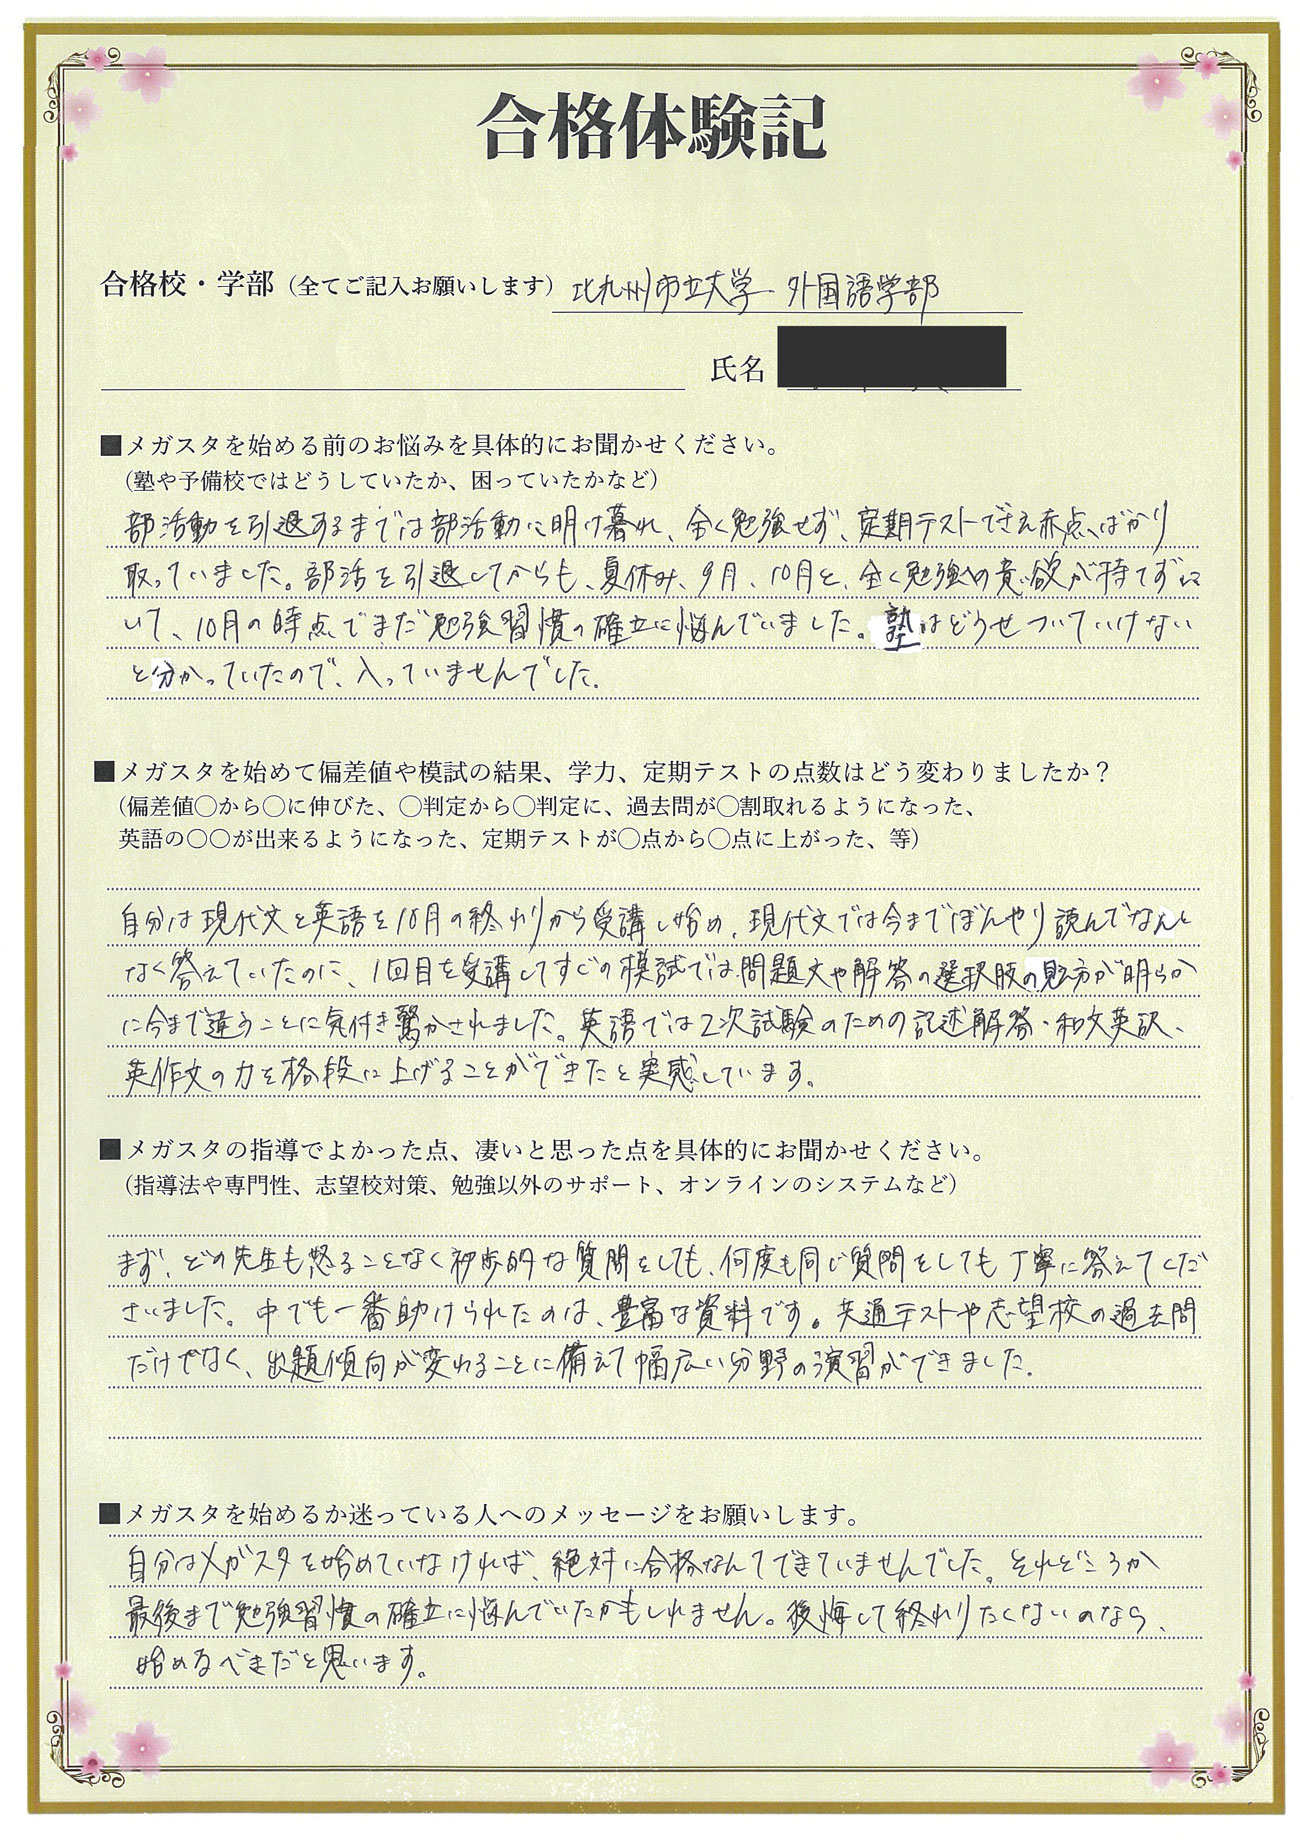 合格体験記
合格校・学部（全てご記入お願いします）北九州市立大学 外国語学部
氏名
■メガスタを始める前のお悩みを具体的にお聞かせください。
（塾や予備校ではどうしていたか、困っていたかなど）
部活動を引退するまでは部活動に明け暮れ、全く勉強せず、定期テストでさえ赤点ばかり
取っていました。部活を引退してからも、夏休み、9月、10月と、全く勉強への意欲が持てずに
いて、10月の時点でまだ勉強習慣の確立に悩んでいました。塾はどうせついていけない
と分かっていたので、入っていませんでした。
■メガスタを始めて偏差値や模試の結果、学力、定期テストの点数はどう変わりましたか？
（偏差値〇から〇に伸びた、〇判定から〇判定に、過去問が〇割取れるようになった、
英語の〇〇が出来るようになった、定期テストが〇点から〇点に上がった、等）
自分は現代文と英語を10月の終わりから受講し始め、現代文では今までぼんやり読んでなんと
なく答えていたのに、1回目を受講してすぐの模試では問題文や解答の選択肢の見え方が明らか
に今まで違うことに気付き驚かされました。英語では2次試験のための記述解答・和文英訳、
英作文の力を格段に上げることができたと実感しています。
■メガスタの指導でよかった点、凄いと思った点を具体的にお聞かせください。
（指導法や専門性、志望校対策、勉強以外のサポート、オンラインのシステムなど）
まず、どの先生も怒ることなく初歩的な質問をしても、何度も同じ質問をしても丁寧に答えてくだ
さいました。中でも一番助けられたのは、豊富な資料です。共通テストや志望校の過去問
だけでなく、出題傾向が変わることに備えて幅広い分野の演習ができました。
■メガスタを始めるか迷っている人へのメッセージをお願いします。
自分はメガスタを始めていなければ、絶対に合格なんてできていませんでした。それどころか
最後まで勉強習慣の確立に悩んでいたかもしれません。後悔して終わりたくないのなら、
始めるべきだと思います。